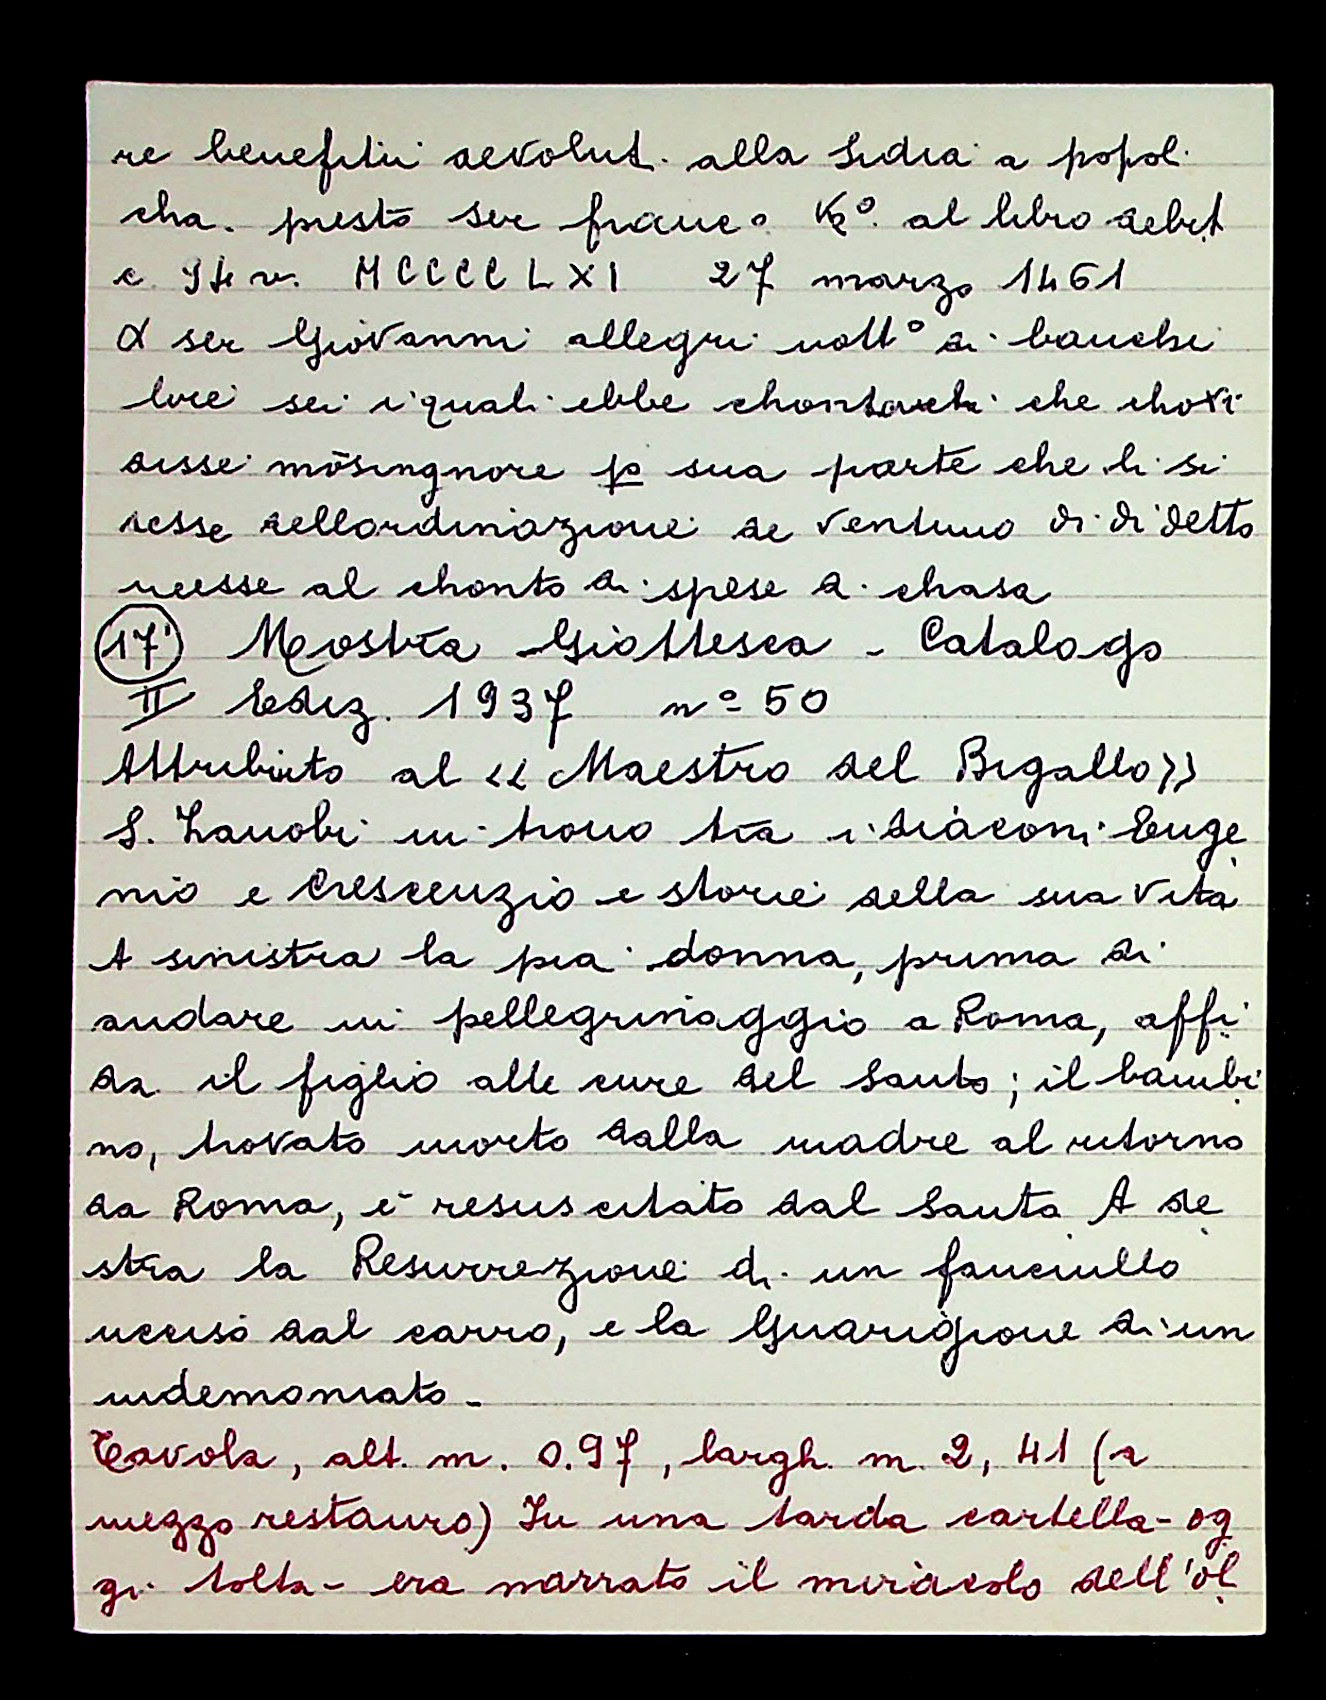 re benefitii devolut. alla Sidia a popol.
cha. prestò ser franc.o Kº. al libro debit
c. 94 v. MCCCCLXI 27 marzo 1461
A ser Giovanni allegri nott° di banchi
lire sei i quali ebbe chontanti che chosi
disse mōsingnore p sua parte che li si
desse dellordinazione de ventuno di di detto
messe al chonto di spese di chasa
17 Mostra Giottesca - Catalogo
II Ediz. 1937 nº 50
Attribuito al << Maestro del Bigallo>>
S. Zanobi in trono tra i diaconi Euge
nio e Crescenzio e storie della sua vita
A sinistra la pia donna, prima di
andare in pellegrinaggio a Roma, affi
da il figlio alle cure del Santo; il bambi
no, trovato morto dalla madre al ritorno
da Roma, è resuscitato dal Santo A de
stra la Resurrezione di un fanciullo
ucciso dal carro, e la Guarigione di un
indemoniato-
Tavola, alt. m. 0.97, largh. m. 2,41 (a
mezzo restauro) In una tarda cartella- og
gi tolta- era narrato il miracolo dell'ol